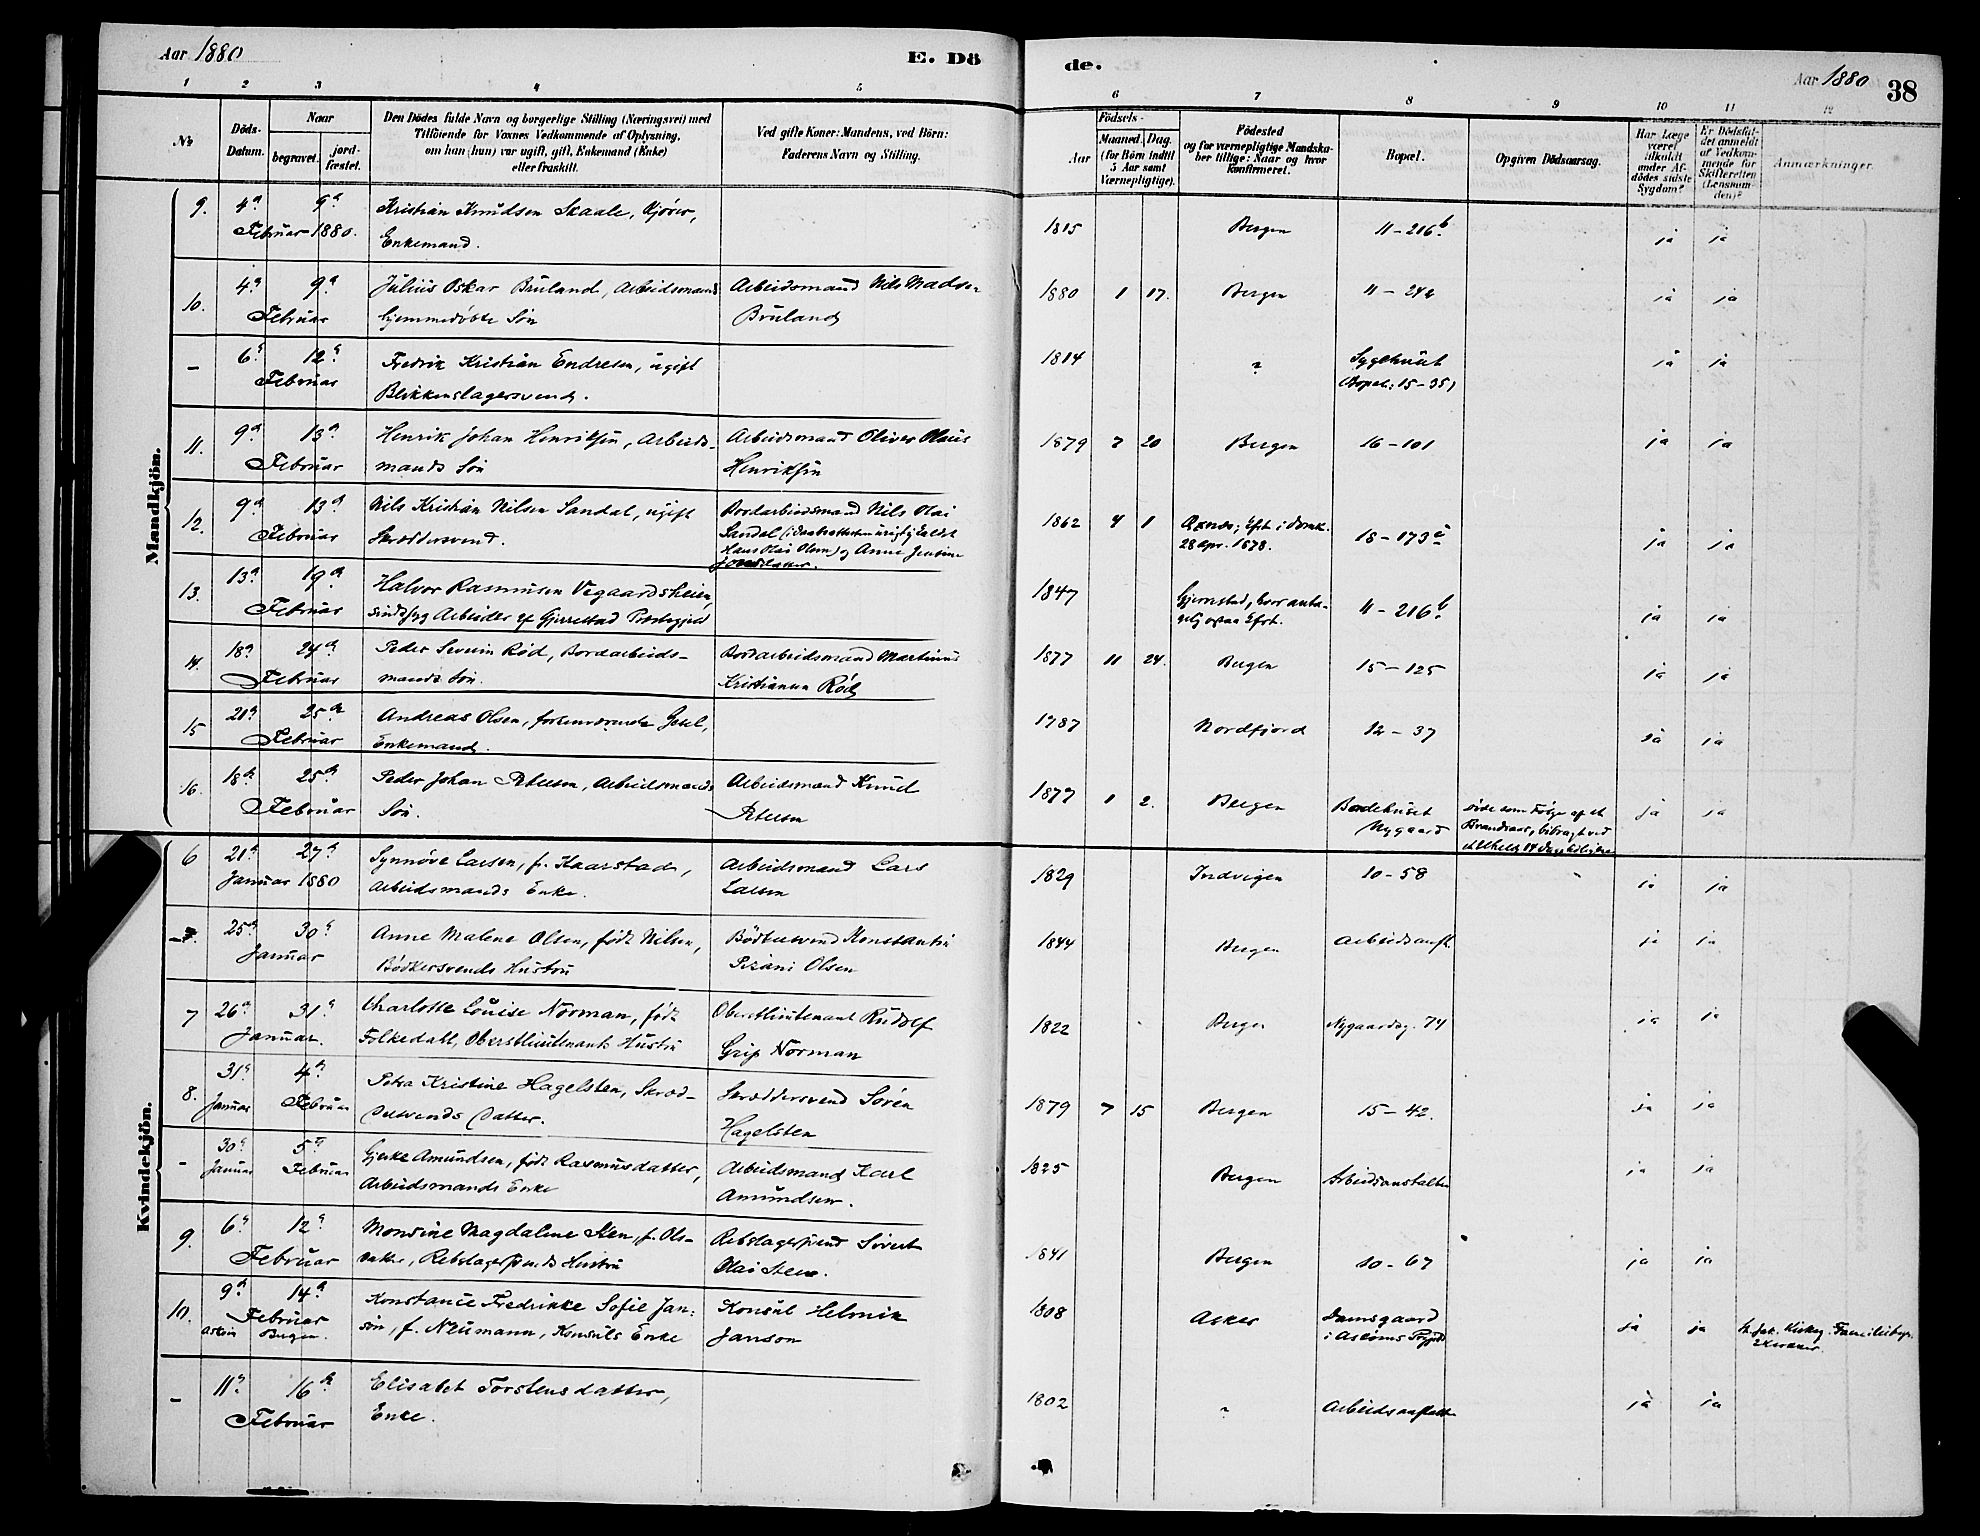 Aar 1880
E. Dö
de.
Aar 1880
38
1 2 3 4 5
6 7 8 9 10 11 12
No
Döds-Datum.
Naar
begravet.
jord-fæstet.
Den Dödes fulde Navn og borgerlige Stilling (Næringsvei) med
Tilföiende for Voxnes Vedkommende af Oplysning,
om han (hun) var ugift, gift, Enkemand (Enke)
eller fraskilt.
Ved gifte Koner: Mandens, ved Börn:
Faderens Navn og Stilling.
Födsels-
Aar
Maaned. Dag.
(for Börn indtil
5 Aar samt
Værnepligtige).
Födested
og for værnepligtige Mandska-
ber tillige: Naar og hvor
konfirmeret.
Bopæl.
Opgiven Dödsaarsag.
Har Læge
været
tilkaldt
under Af-
dödes sidste
Sygdom?
Er Dödsfal-
det anmeldt
af Vedkom-
mende for
Skifteretten
(Lensman-
den)?
Anmærkninger.
Mandkjön.
9. 4de 9de Kristian Knudsen Skaale, Kjører, 1815 Bergen 11-216b ja ja
Februar 1880. Enkemand.
10. 4de 9de Julius Oskar Bruland, Arbeidsmands Arbeidsmand Nils Madsen 1880 1 17. Bergen 11-244 ja ja
Februar hjemmedøbte Søn Bruland
- 6te 12te Fredrik Kristian Endresen, ugift 1814 ? Sygehuset ja ja
Februar Blikkenslagersvend. (Bopæl: 15-35)
11. 9de 13de Henrik Johan Henriksen, Arbeids- Arbeidsmand Oliver Olaus 1879 7 20 Bergen 16-101 ja ja
Februar mands Søn Henriksen
12. 9de 13de Nils Kristian Nilsen Sandal, ugift Bordarbeidsmand Nils Olai 1862 4 1 Askvoll; Cfrt. i Domk. 18-173a ja ja
Februar Skræddersvend. Sandal
Hans Olai Olsen) og Anne Jentine 28 Apr. 1878.
13. 13de 19de Halvor Rasmusen Vegaardsheien, 1847 Gjerrestad, hvor anta- 11-216b ja ja
Februar sindssyg Arbeider af Gjerrestad Præstegjeld gelig ogsaa Cfrt.
14. 18de 24de Peder Severin Rød, Bordarbeids- Bordarbeidsmand Martinus 1877 11 24. Bergen 15-125 ja ja
Februar mands Søn. Kristiansen Rød
15 21de 25de Andreas Olsen, forhenværende Gesel, 1787 Nordfjord 12-37 ja ja
Februar Enkemand.
16. 18de 25de Peder Johan Petersen, Arbeidsmands Arbeidsmand Knud 1877 1 2. Bergen Badehuset døde som Følge af et ja ja
Februar Søn. Petersen Nygaard Brandsaar, bibragt ved
et Uheld 14 Dage tidligere
Kvindekjön.
6 21de 27de Synnøve Larsen, f. Kaarstad, Arbeidsmand Lars 1829 Indvigen 10-58 ja ja
Januar 1880 Arbeidsmands Enke. Larsen
- 25de 30te Anne Malene Olsen, født Nilsen, Bødkersvend Konstantin 1844 Bergen Arbeidsanst. ja ja
Januar Bødkersvends Hustru Pisani Olsen
7 26de 31te Charlotte Louise Norman, født Oberstlieutenant Rudolf 1822 Bergen Nygaardsg. 74 ja ja
Januar. Folkedahl, Oberstlieutenants Hustru Grip Norman
8. 31te 4de Petra Kristine Hagelsten, Skræd- Skræddersvend Søren 1879 7 15 Bergen 15-42. ja ja
Januar Februar dersvends Datter. Hagelsten
- 30te 5te Gjerke Amundsen, født Rasmusdatter, Arbeidsmand Karl 1825 Bergen Arbeidsanstalten ja ja
Januar Februar Arbeidsmands Enke Amundsen.
9. 6te 12te Monsine Magdalene Steen, f. Ols- Rebslagersvend Sivert 1841 Bergen 10-67 ja ja
Februar datter, Rebslagersvends Hustru Olai Steen.
10. 9de 14de Konstance Fredrikke Sofie Jan- Konsul Helmik 1808 Asker Damsgaard ja ja St. Jak. Kirkeg. Familiebegr.
Februar søn, f. Neumann, Konsuls Enke Janson i Askøens Prgjeld 2 Kroner.
Askøen Bergen.
- 11te 16de Elisabet Torstensdatter, 1802 ? Arbeidsanstalten ja ja
Februar Enke.